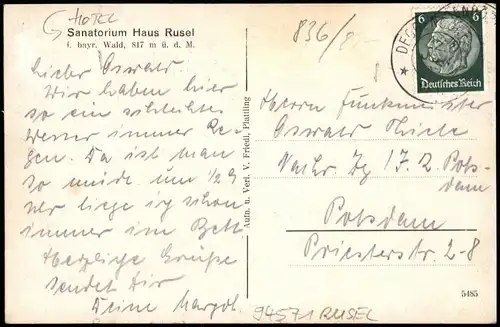 HOTEL
Sanatorium Haus Rusel
i. bayr. Wald, 817 m ü. d. M.
836/
Lieber Oswald
Wir haben hier
so ein schlechtes
Wetter immer Re-
gen. Da ist man
so müde um 1/2 9
Uhr liege ich schon
immer im Bett
Herzliche Grüße
sendet Dir
Deine Margot.
Aufn. u. Verl. V. Friedl, Plattling
6 6
Deutsches Reich
DEGGENDORF
Herrn Funkmeister
Oswald Thiele
Nachr. 17. Pots-
dam
Potsdam
Priesterstr. 2-8
5485
94571 RUSEL